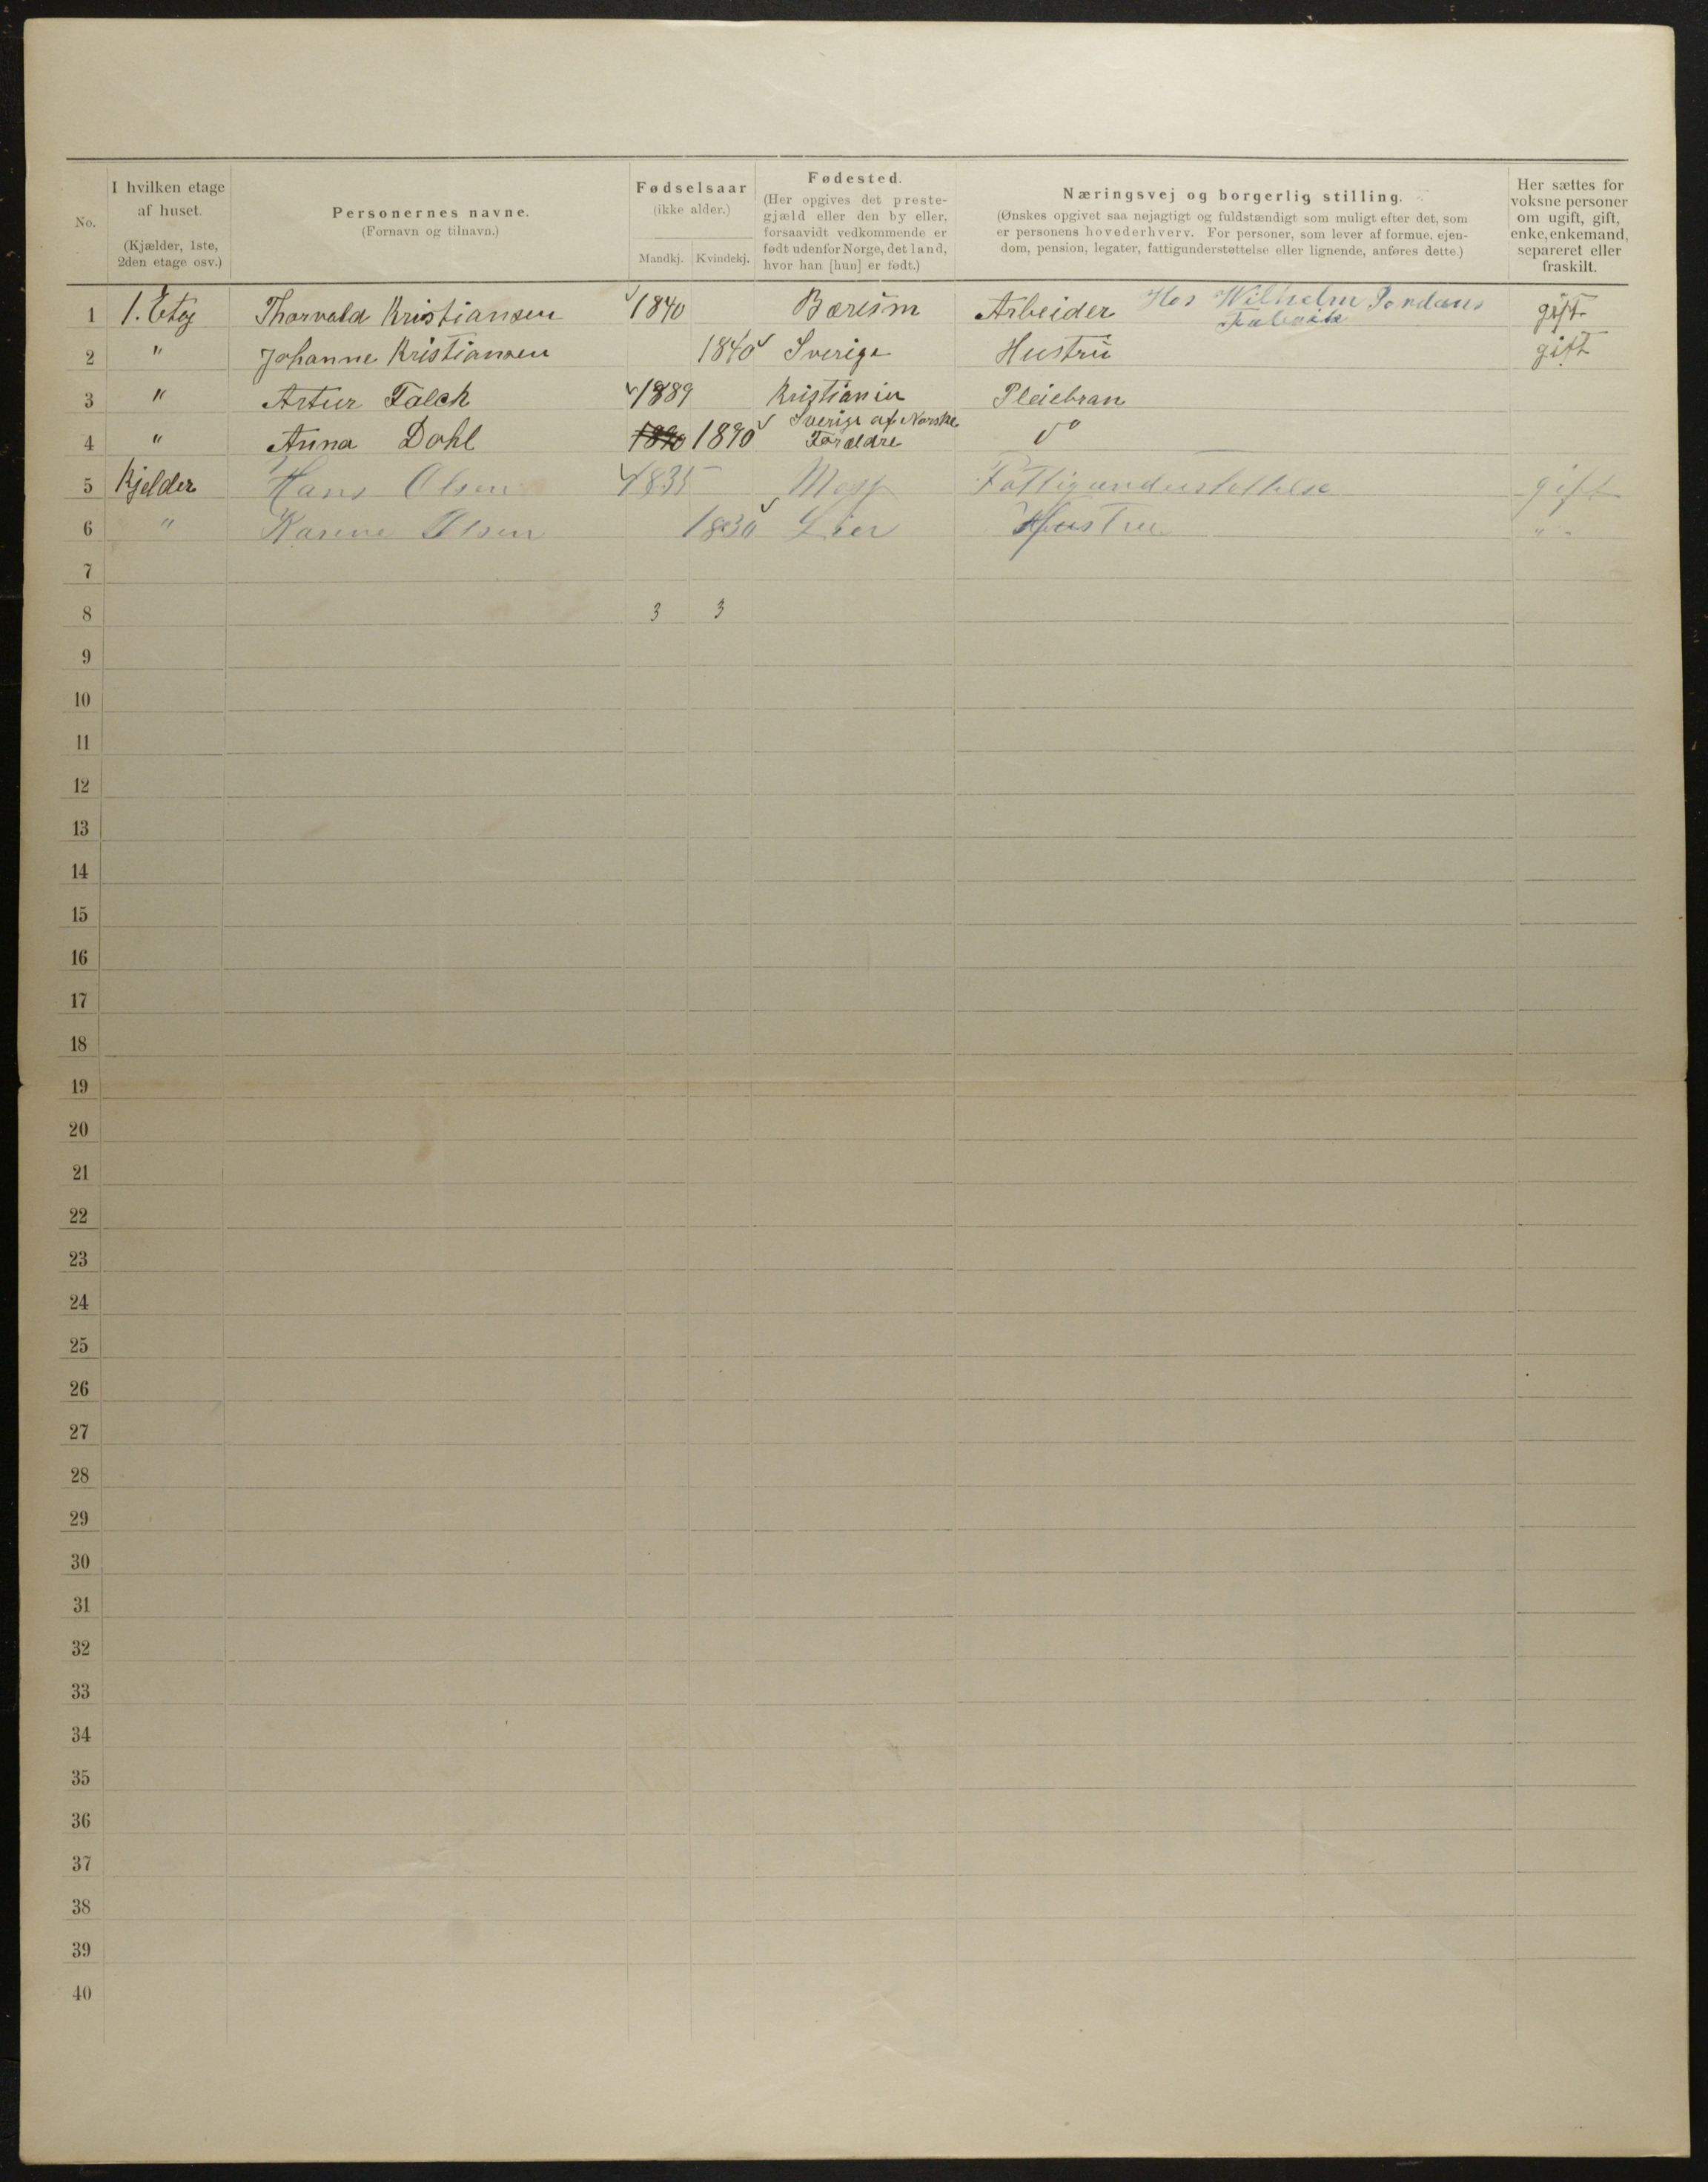 No.
I hvilken etage af huset.
(Kjælder, 1ste, 2den etage osv.)
Personernes navne.
(Fornavn og tilnavn.)
Fødselsaar
(ikke alder.)
Mandkj. Kvindekj.
Fødested.
(Her opgives det preste-
gjæld eller den by eller,
forsaavidt vedkommende er
født udenfor Norge, det land,
hvor han [hun] er født.)
Næringsvej og borgerlig stilling.
(Ønskes opgivet saa nøjagtigt og fuldstændigt som muligt efter det, som
er personens hovederhverv. For personer, som lever af formue, ejen-
dom, pension, legater, fattigunderstøttelse eller lignende, anføres dette.)
Her sættes for
voksne personer
om ugift, gift,
enke, enkemand,
separeret eller
fraskilt.
1 1. Etag Thorvald Kristiansen 1840 Bæreism Arbeider Hos Wilhelm Jordans gift
Fabrik
2 " Johanne Kristiansen 1840 Sverige Hustru gift
3 " Artur Falch 1889 Kristiania Pleiebran
4 " Anna Dahl 1890 1890 Sverige af Norske
Forældre do
5 Kjelder Hans Olsen 1835 Moss Fattigunderstettelse gift
6 " Karine Olsen 1830 Lier Hustru "
7
8 3 3
9
10
11
12
13
14
15
16
17
18
19
20
21
22
23
24
25
26
27
28
29
30
31
32
33
34
35
36
37
38
39
40